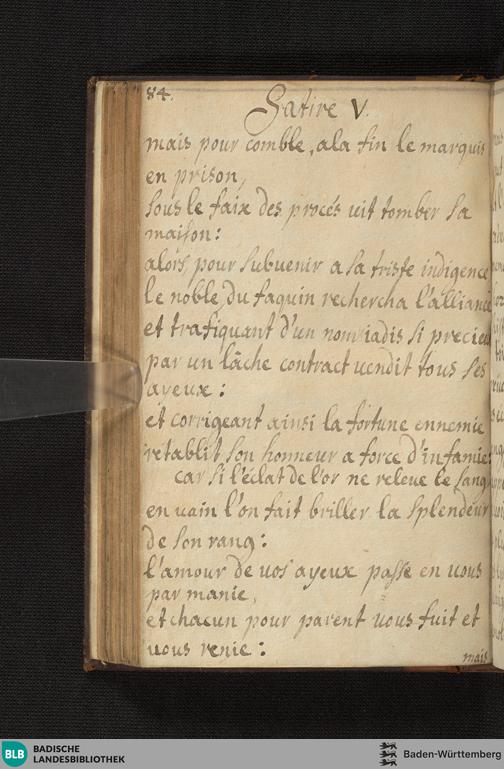 84.
Satire V.
mais pour comble, ala fin le marquis
en prison,
sous le faix des procés uit tomber sa
maison:
alors pour subuenir a sa triste indigence
le noble du faquin rechercha l'alliance
et trafiquant d'un nom jadis si precieu
par un lâche contract uendit tous ses
ayeux:
et corrigeant ainsi la fortune ennemie
retablit son honneur a force d'infamie:
car si l'éclat de l'or ne releue le sang
en uain l'on fait briller la splendeur
de son rang:
l'amour de uos ayeux passe en uous
par manie,
et chacun pour parent uous fuit et
uous renie:
mais
BLB BADISCHE
LANDESBIBLIOTHEK
Baden-Württemberg